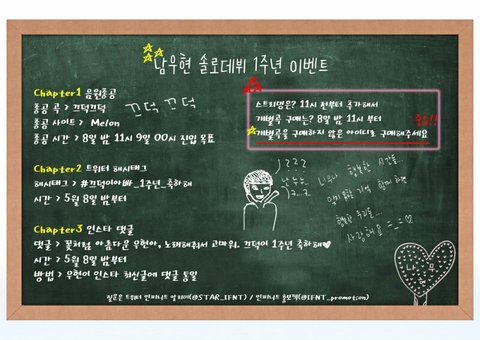 남우현 솔로데뷔 1주년 이벤트
Chapter1 음원총공
총공 곡 > 끄덕끄덕
총공 사이트 > Melon
총공 시간 > 8일 밤 11시 9일 00시 진입 목표
끄덕 끄덕
스트리밍은? 11시 전부터 추가해서
개별곡 구매는? 8일 밤 11시 부터
개별곡을 구매하지 않은 아이디로 구매해주세요
중요!!
Chapter2 트위터 해시태그
해시태그 > #끄덕이아빠_1주년_축하해
시간 > 5월 8일 밤부터
Chapter3 인스타 댓글
댓글 > 꽃처럼 아름다운 우현아, 노래해줘서 고마워. 끄덕이 1주년 축하해♥
시간 > 5월 8일 밤부터
방법 > 우현이 인스타 최신글에 댓글 통일
너와 행복한 시간을
함께 하며
행복한 우리들...
사랑해요 ㅡ ㅡ ♡
나 무
질문은 트위터 인피니트 알리미(@STAR_IFNT) / 인피니트 홍보계(@IFNT_promotion)